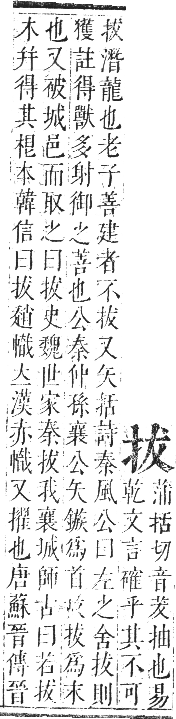 拔
蒲括切音茇抽也易
乾文言確乎其不可
拔潛龍也老子善建者不拔又矢括詩秦風公曰左之舍拔則
獲註得獸多射御之善也公秦仲孫襄公矢鏃爲首拔爲末
也又破城邑而取之曰拔史魏世家秦拔我襄城師古曰若拔
木幷得其根本韓信曰拔趙幟立漢赤幟又擢也唐蘇晉傳晉